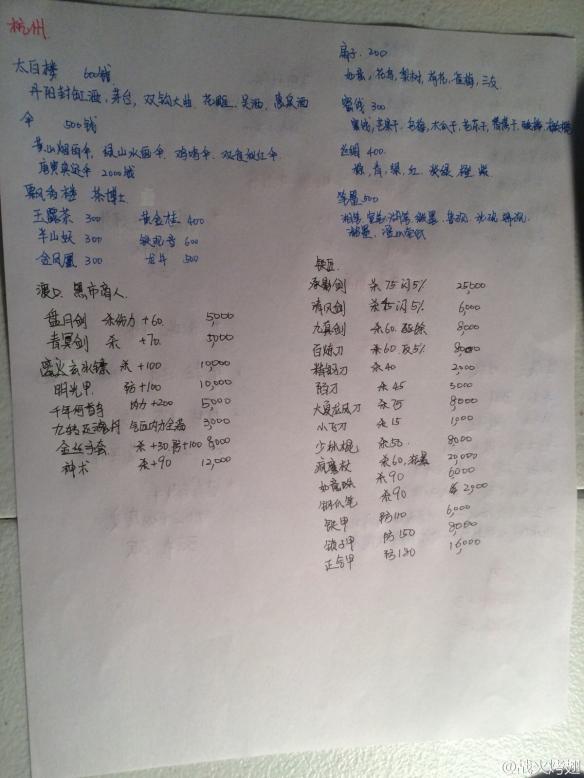 杭州
太白楼 600钱
丹阳封缸酒,茅台,双钩大曲,花雕,吴酒,惠泉酒
伞 500钱
黄山烟雨伞,绿山水画伞,鸡鸣伞,双
唐寅 2000钱
飘香楼 茶博士
玉露茶 300 黄金桂 400
半山妖 300 铁观音 600
金凤凰 300 龙井 500
渡口 黑市商人
盘月剑 杀伤力+60. 5,000
青冥剑 杀+70. 5,000
玄冰镖 杀+100 10,000
明光甲 防+100 10,000
千年何首乌 内力+200 5,000
九转 丹 气血内力全满 3,000
金丝手套 杀+30,防+100 8,000
神术 杀+90 12,000
扇子,200
如意,花鸟,梨树,荷花,雀梅,三友
蜜饯 300
蜜饯,芒果干,乌梅,木瓜干
丝绸 400.
棕,青,绿,红,紫
笔墨500
铁匠
承影剑 杀75闪5% 25,000
清风剑 杀 闪5% 6,000
九真剑 杀60. 8,000
百炼刀 杀60,反5% 8,000
精钢刀 杀40 2,000
陌刀 杀45 3000
大夏龙凤刀 杀75 8,000
小飞刀 杀15 1,000
少林棍 杀50. 8,000
疯魔杖 杀60, 20,000
如意 杀90 6,000
判爪笔 杀90 2,000
铁甲 防110 6,000
锁子甲 防150 8,000
正合甲 防180 16,000
@战火烤翅